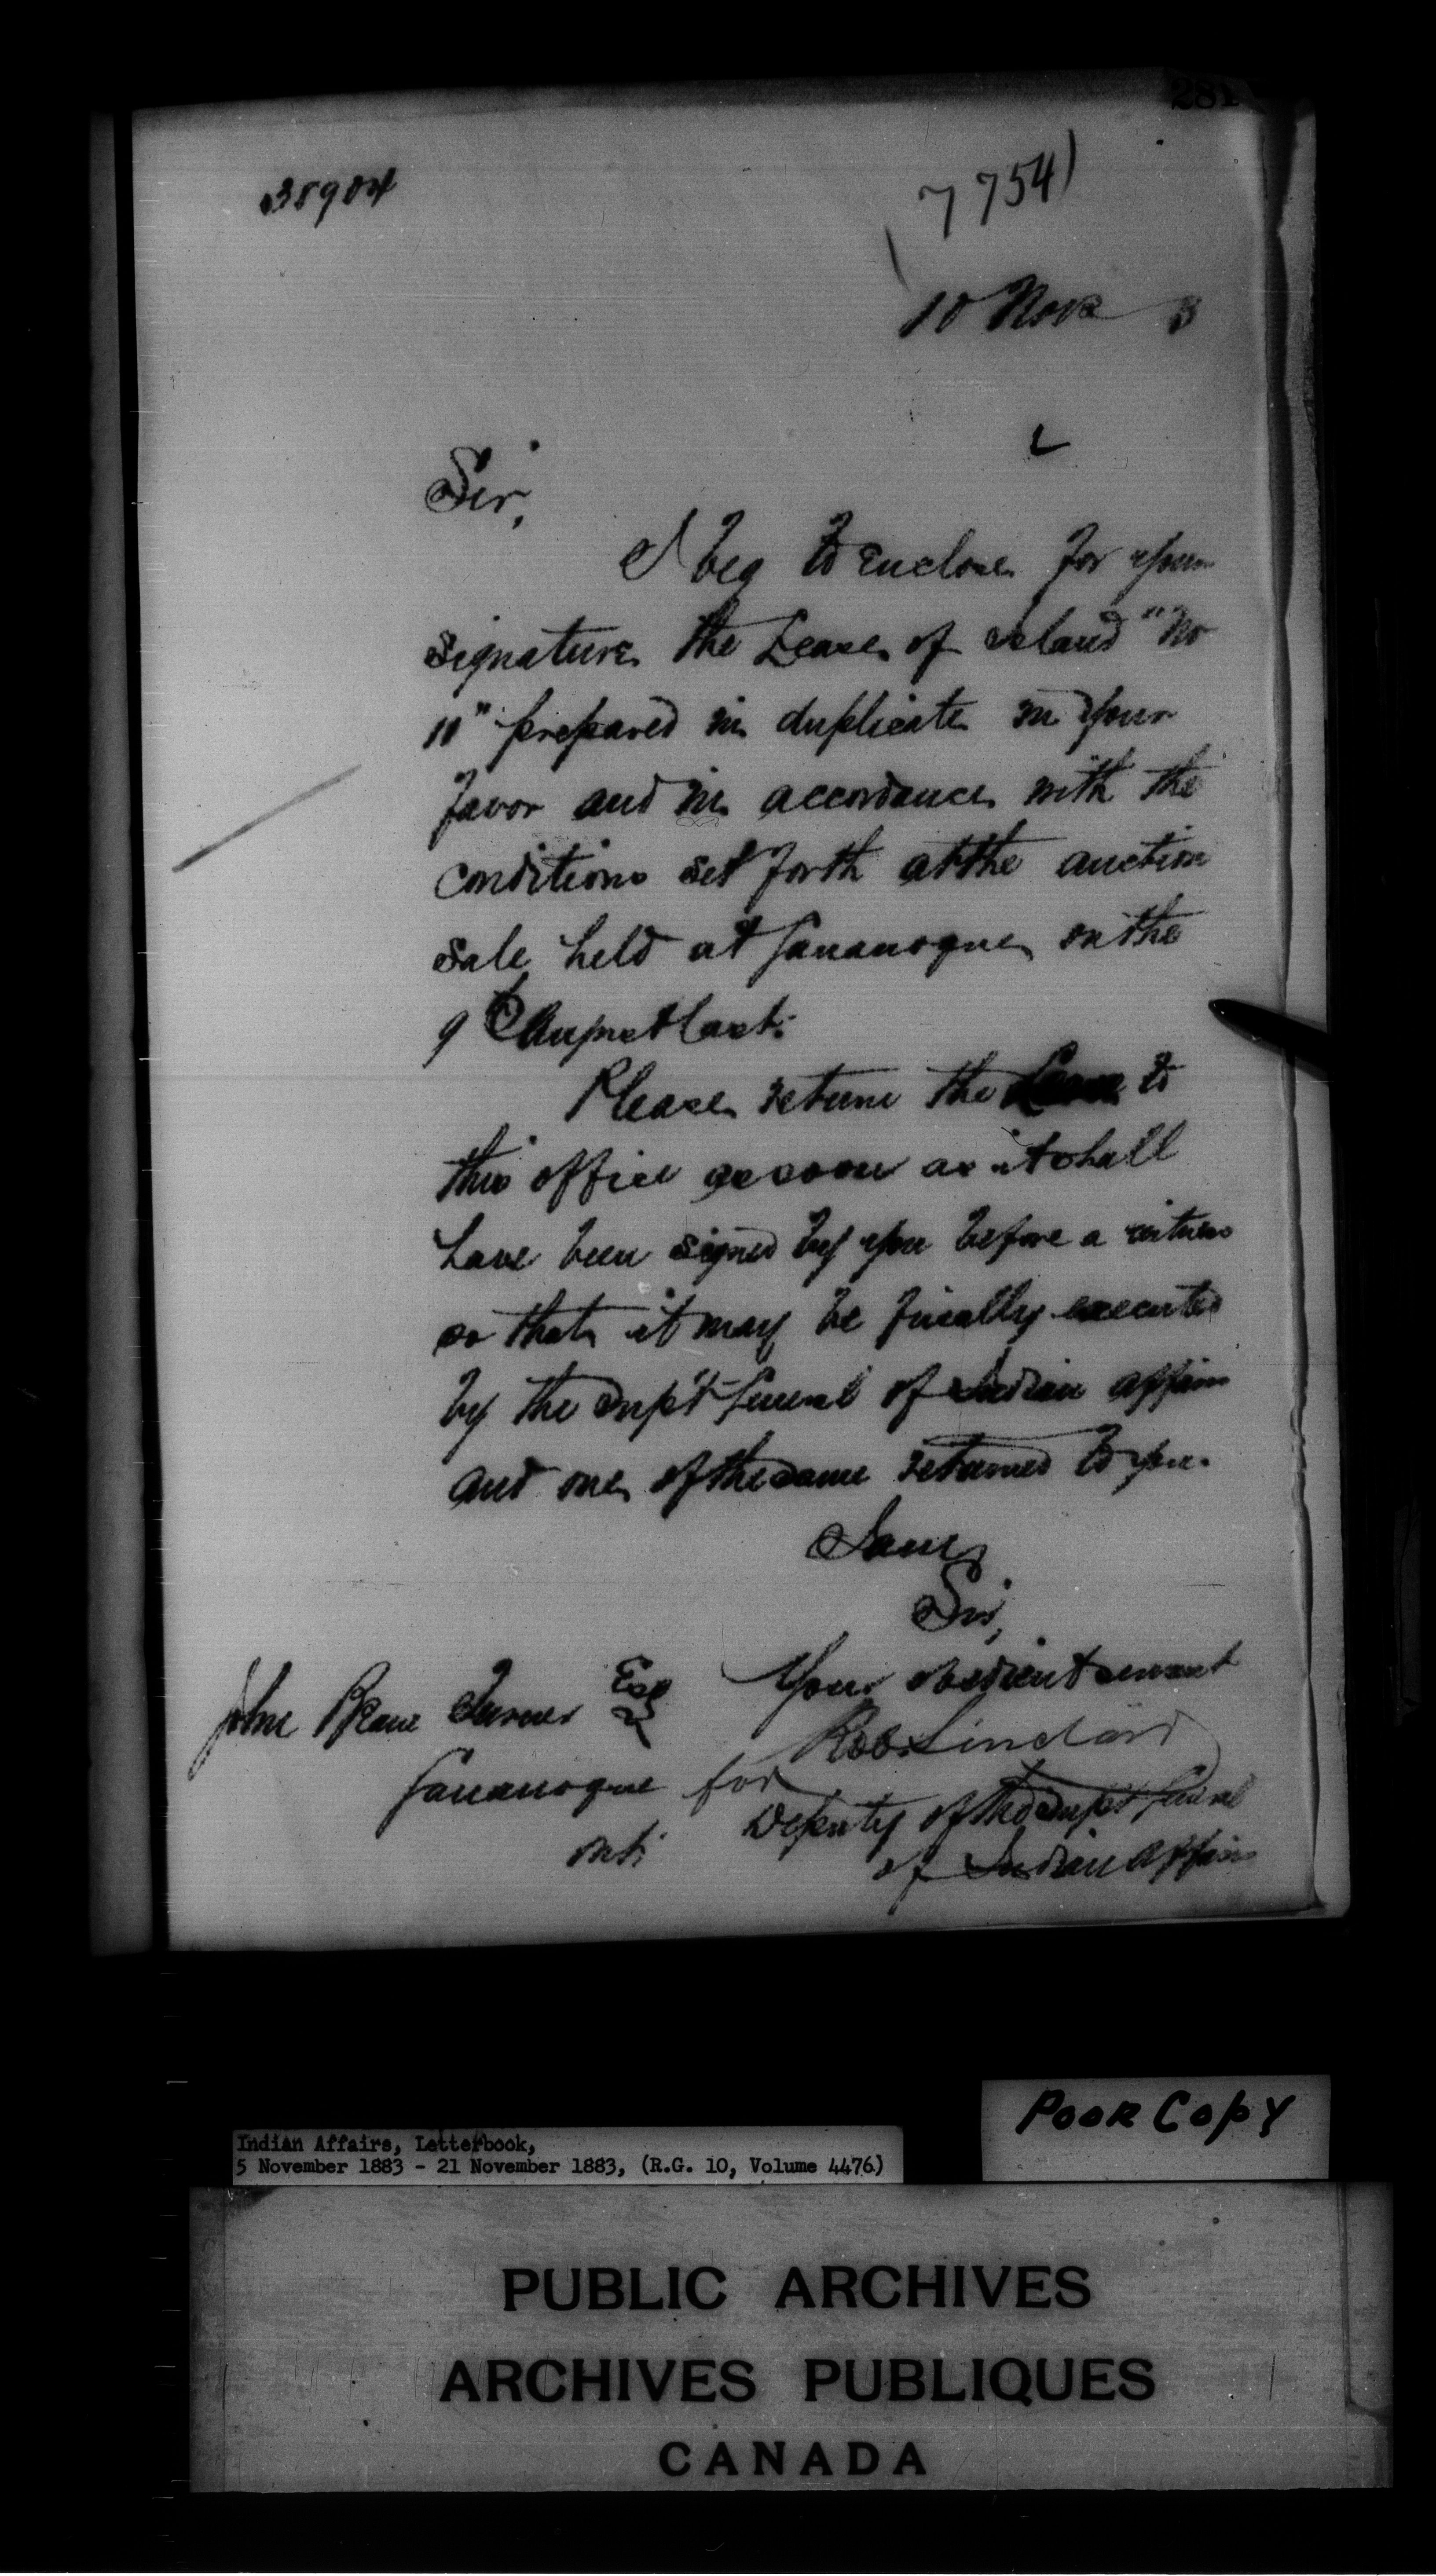 281
38904
7754
10 Nov 3
Sir,
I beg to enclose for your
signature the Lease of Island "No
11" prepared in duplicate in your
favor and in accordance with the
conditions set forth at the auction
sale held at Gananoque on the
9th August last.
Please return the Lease to
this office as soon as it shall
have been signed by you before a witness
so that it may be finally executed
by the Supt General of Indian Affairs
and one of the same returned to you.
I am,
Sir,
Your obedient servant
John Turner Esq
Rob. Sinclair
Gananoque for
Deputy of the Supt General
Ont: of Indian Affairs
Poor Copy
Indian Affairs, Letterbook,
5 November 1883 - 21 November 1883, (R.G. 10, Volume 4476)
PUBLIC ARCHIVES
ARCHIVES PUBLIQUES
CANADA